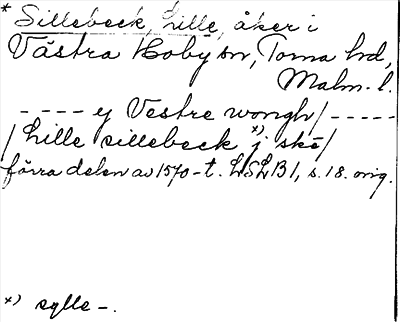 * Sillebeck, Lille, åker i
Västra Hoby sn, Torna hd,
Malm. l.
---- ej Vestre wongh/-----
/Lille sillebeck x) j skě/
förra delen av 1570-t. LSLB 1, s. 18. orig.
x) sylle-.